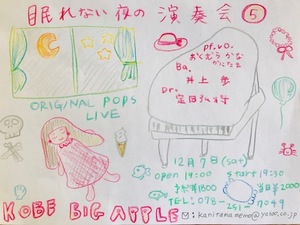 眠れない夜の演奏会⑤
ORIGINAL POPS
LIVE
Pf.vo.
おくむらかな
かにたま
Ba.
井上 歩
Dr.
12月7日(sat)
open 19:00 start 19:30
¥1800 当日¥2000
TEL: 078-251-7049
✉: kanitamamemo@yahoo.co.jp
KOBE BIG APPLE